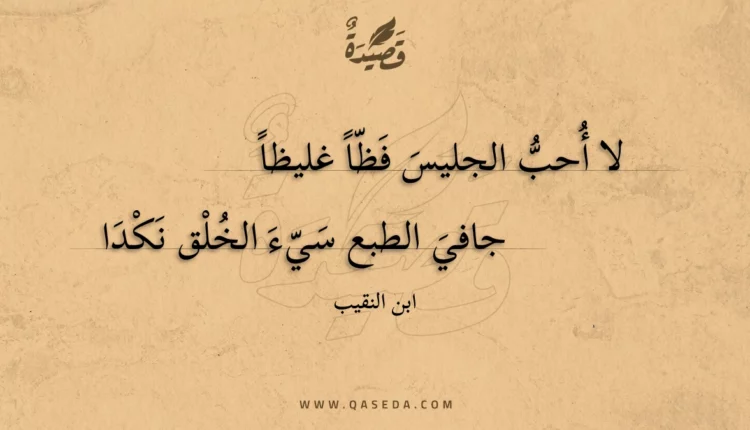 قَصِيْدَةٌ
لا أُحبُّ الجليسَ فَظّاً غليظاً
جافيَ الطبع سَيّءَ الخُلْق نَكْدَا
ابن النقيب
WWW.QASEDA.COM